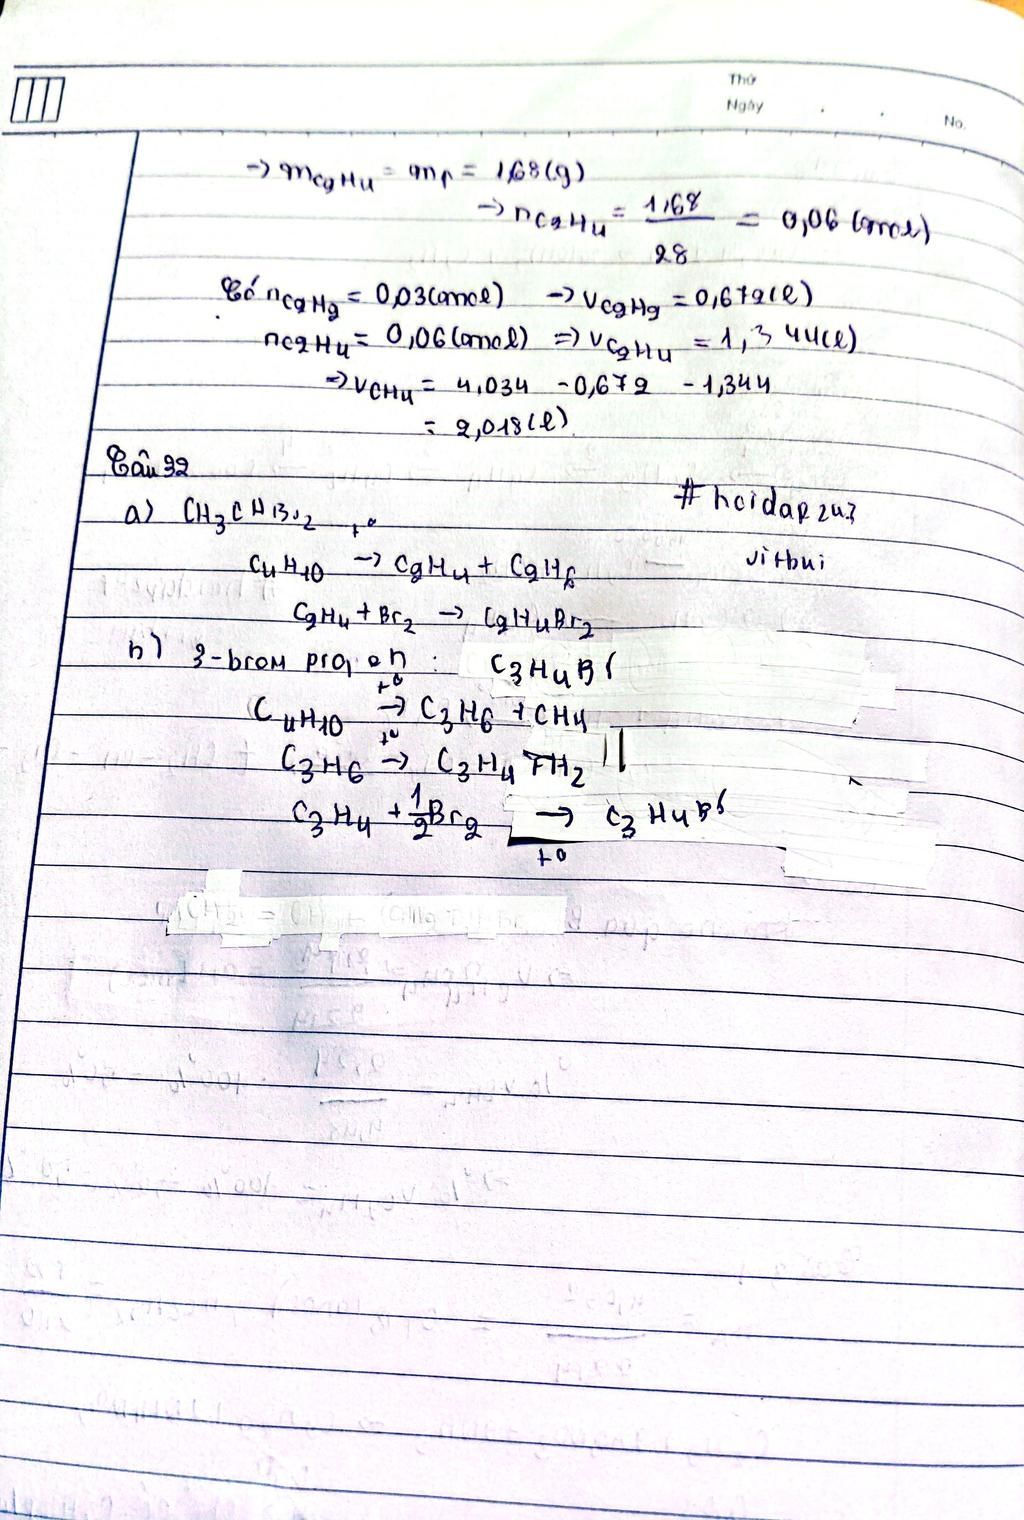 Thứ
Ngày
No.
→ mC2H4 = m↑ = 1,68 (g)
→ nC2H4 = 1,68 / 28 = 0,06 (mol)
Có nC2H2 = 0,03 (mol) → VC2H2 = 0,672 (l)
nC2H4 = 0,06 (mol) => VC2H4 = 1,344 (l)
=> VCH4 = 4,034 - 0,672 - 1,344
= 2,018 (l)
Câu 32
# hoidap247
a) CH3CHBr2
t°
C4H10 → C2H4 + C2H6
vitbui
C2H4 + Br2 → C2H4Br2
b) 3-brom propen : C3H4Br
C4H10 t° → C3H6 + CH4
C3H6 t° → C3H4 + H2
C3H4 + 1/2 Br2 → t° C3H4Br